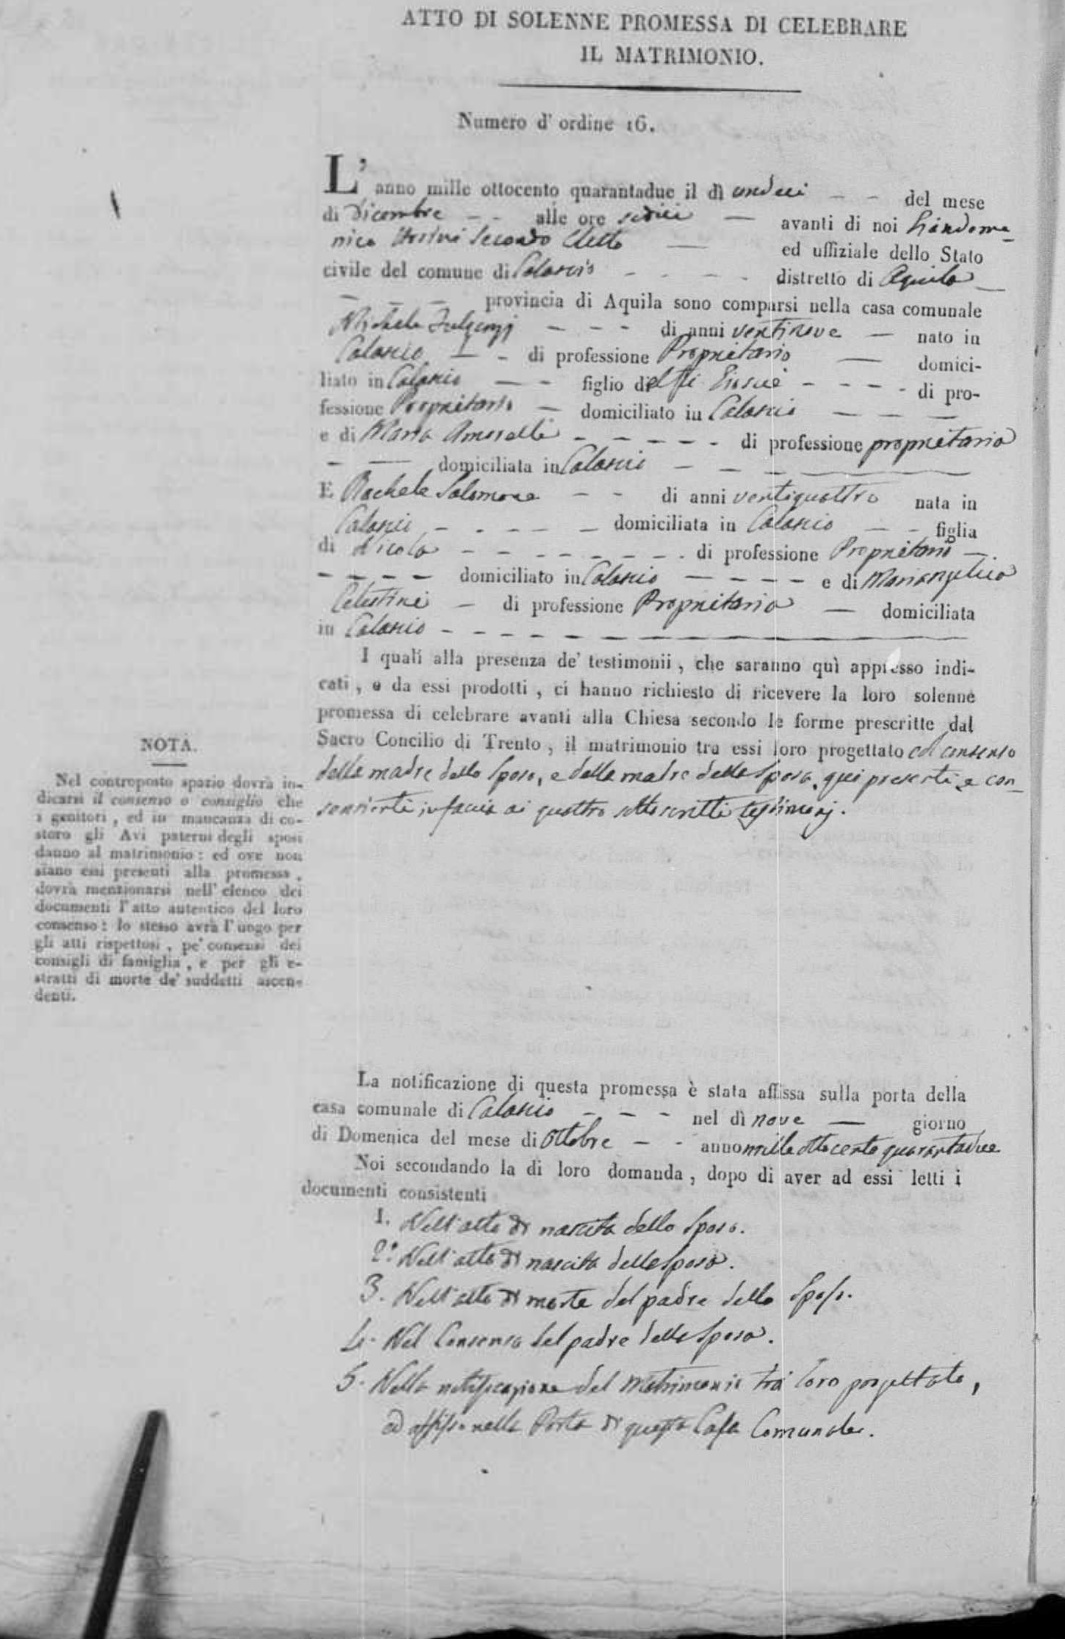 ATTO DI SOLENNE PROMESSA DI CELEBRARE
IL MATRIMONIO.
Numero d' ordine 16.
L' anno mille ottocento quarantadue il dì undeci - - del mese
di Dicembre - - alle ore sedici - avanti di noi Giandome-
nico Secondo Eletto - ed uffiziale dello Stato
civile del comune di Calascio - - - - distretto di Aquila -
- - - provincia di Aquila sono comparsi nella casa comunale
Michele Fulgenzj - - - di anni ventinove - nato in
Calascio - - di professione Proprietario - domici-
liato in Calascio - - figlio del fu Giosuè - - - - di pro-
fessione Proprietario - domiciliato in Calascio - - -
e di Maria Amorelli - - - - - di professione proprietaria
- - domiciliata in Calascio - - - -
E Rachele Salomone - - di anni ventiquattro nata in
Calascio - - - - - domiciliata in Calascio - - figlia
di Nicola - - - - - - - - di professione Proprietario -
- - - - domiciliato in Calascio - - - - - e di Mariangelica
Celestini - di professione Proprietaria - domiciliata
in Calascio - - - - - -
I quali alla presenza de' testimonii, che saranno quì appresso indi-
cati, e da essi prodotti, ci hanno richiesto di ricevere la loro solenne
promessa di celebrare avanti alla Chiesa secondo le forme prescritte dal
Sacro Concilio di Trento, il matrimonio tra essi loro progettato col consenso
della madre dello Sposo, e della madre della Sposa, qui presenti e con-
senzienti in faccia ai quattro sottoscritti testimonj.
NOTA.
Nel controposto spazio dovrà in-
dicarsi il consenso o consiglio che
i genitori, ed in mancanza di co-
storo gli Avi paterni degli sposi
danno al matrimonio: ed ove non
siano essi presenti alla promessa,
dovrà menzionarsi nell' elenco dei
documenti l' atto autentico del loro
consenso: lo stesso avrà l' uogo per
gli atti rispettosi, pe' consensi dei
consigli di famiglia, e per gli e-
stratti di morte de' suddetti ascen-
denti.
La notificazione di questa promessa è stata affissa sulla porta della
casa comunale di Calascio - - - nel dì nove - giorno
di Domenica del mese di Ottobre - - anno mille ottocento quarantadue
Noi secondando la di loro domanda, dopo di aver ad essi letti i
documenti consistenti
1. Nell'atto di nascita dello Sposo.
2.° Nell'atto di nascita della Sposa.
3. Nell'atto di morte del padre dello Sposo.
4. Nel Consenso del padre della Sposa.
5. Nella notificazione del Matrimonio tra loro progettato,
ed affisso nella Porta di questa Casa Comunale.